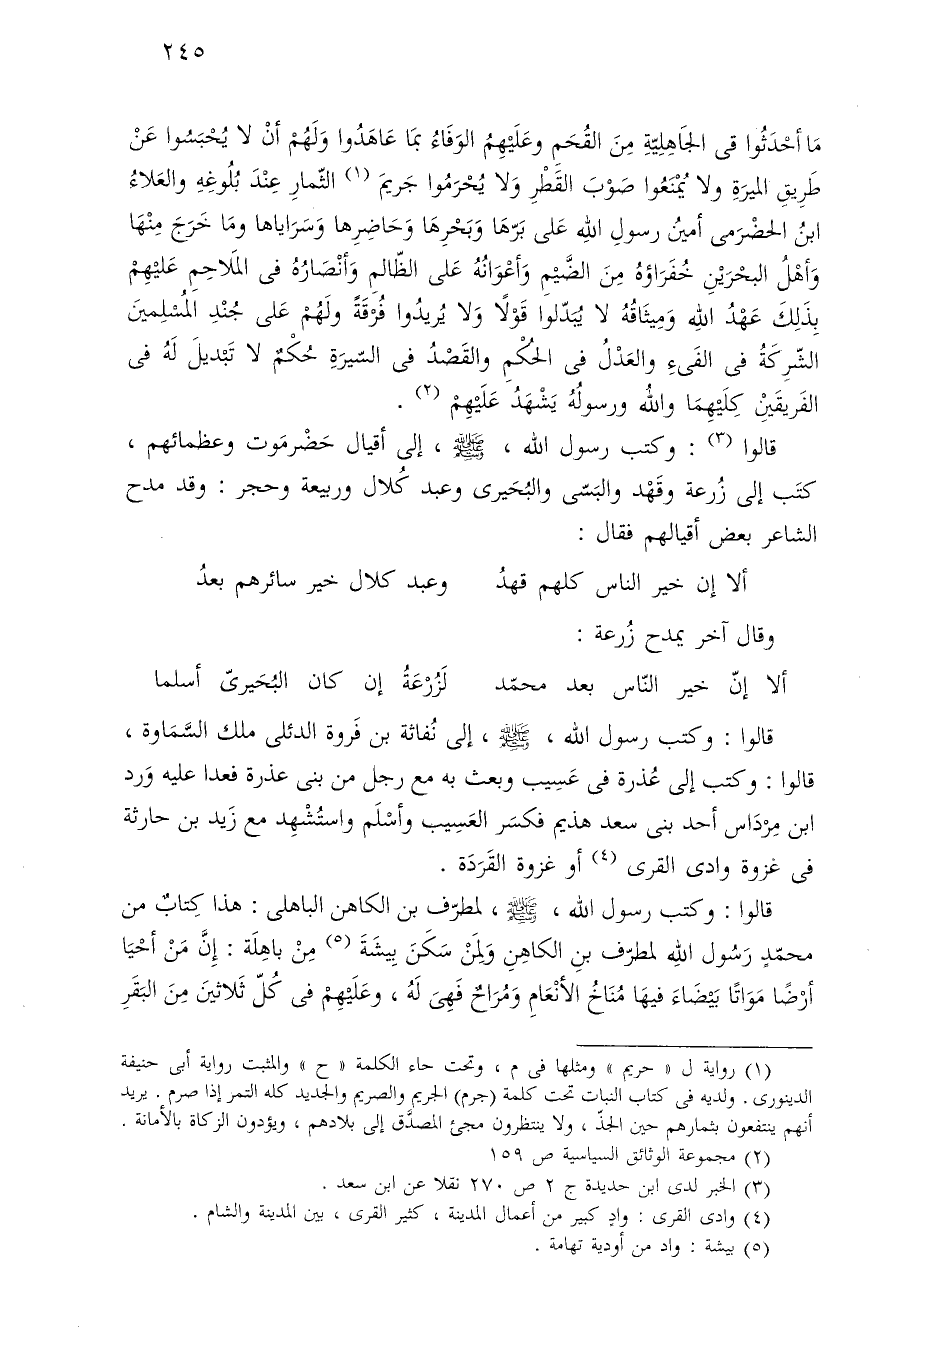 ٢٤٥
مَا أحْدَثُوا فى الجَاهِلِيّةِ مِنَ القُحَمِ وعَلَيْهِمُ الوَفَاءُ بمَا عَاهَدُوا وَلَهُمْ أنْ لا يُحْبَسُوا عَنْ
طَرِيقِ الميرَةِ ولا يُمْنَعُوا صَوْبَ القَطْرِ وَلا يُحْرَمُوا جَريمَ (١) الثّمارِ عِنْدَ بُلُوغِهِ والعَلاءُ
ابنُ الحَضْرَمى أمينُ رسولِ اللهِ عَلى بَرّهَا وَبَحْرِهَا وَحَاضِرِها وَسَرَاياها ومَا خَرَجَ مِنْهَا
وَأهْلُ البحْرَيْنِ خُفَرَاؤهُ مِنَ الضَّيْمِ وَأعْوَانُهُ عَلى الظّالمِ وَأنْصَارُهُ فى المَلَاحِمِ عَلَيْهِمْ
بِذَلِكَ عَهْدُ اللهِ وَمِيثَاقُهُ لا يُبَدّلوا قَوْلًا وَلا يُرِيدُوا فُرْقَةً ولَهُمْ عَلى جُنْدِ المُسْلِمينَ
الشّرِكَةُ فى الفَىءِ والعَدْلُ فى الحُكْمِ والقَصْدُ فى السّيرَةِ حُكْمٌ لا تَبْديلَ لَهُ فى
الفَريقَيْنِ كِلَيْهِمَا واللهُ ورسولُهُ يَشْهَدُ عَلَيْهِمْ (٢) .
قالوا (٣) : وكتب رسول الله ، ﷺ ، إلى أقيال حَضْرمَوت وعظمائهم ،
كتَب إلى زُرعة وقَهْد والبَسّى والبُحَيرى وعبد كُلال وربيعة وحجر : وقد مدح
الشاعر بعض أقيالهم فقال :
ألا إن خير الناس كلهم قهدُ وعبد كلال خير سائرهم بعدُ
وقال آخر يمدح زُرعة :
ألا إنّ خير النّاس بعد محمّد لَزُرْعَةُ إن كان البُحَيرىّ أسلما
قالوا : وكتب رسول الله ، ﷺ ، إلى نُفاثة بن فَروة الدئلى ملك السَّمَاوة ،
قالوا : وكتب إلى عُذرة فى عَسِيب وبعث به مع رجل من بنى عذرة فعدا عليه وَرد
ابن مِرْدَاس أحد بنى سعد هذيم فكسَر العَسِيب وأسْلَم واستُشْهِد مع زَيد بن حارثة
فى غزوة وادى القرى (٤) أو غزوة القَرَدَة .
قالوا : وكتب رسول الله ، ﷺ ، لمطرّف بن الكاهن الباهلى : هذا كِتابٌ من
محمّدٍ رَسُول اللهِ لمطرّف بنِ الكاهِنِ وَلِمَنْ سَكَنَ بِيشَةَ (٥) مِنْ باهِلَة : إنَّ مَنْ أحْيَا
أرْضًا مَوَاتًا بَيْضَاءَ فيهَا مُنَاخُ الأنْعَامِ وَمُرَاحٌ فَهِىَ لَهُ ، وعَلَيْهِمْ فى كُلّ ثَلاثينَ مِنَ البَقَرِ
(١) رواية ل « حريم » ومثلها فى م ، وتحت حاء الكلمة « ح » والمثبت رواية أبى حنيفة
الدينورى . ولديه فى كتاب النبات تحت كلمة (جرم) الجريم والصريم والجديد كله التمر إذا صرم . يريد
أنهم ينتفعون بثمارهم حين الجذّ ، ولا ينتظرون مجئ المصدَّق إلى بلادهم ، ويؤدون الزكاة بالأمانة .
(٢) مجموعة الوثائق السياسية ص ١٥٩
(٣) الخبر لدى ابن حديدة ج ٢ ص ٢٧٠ نقلا عن ابن سعد .
(٤) وادى القرى : وادٍ كبير من أعمال المدينة ، كثير القرى ، بين المدينة والشام .
(٥) بيشة : واد من أودية تهامة .